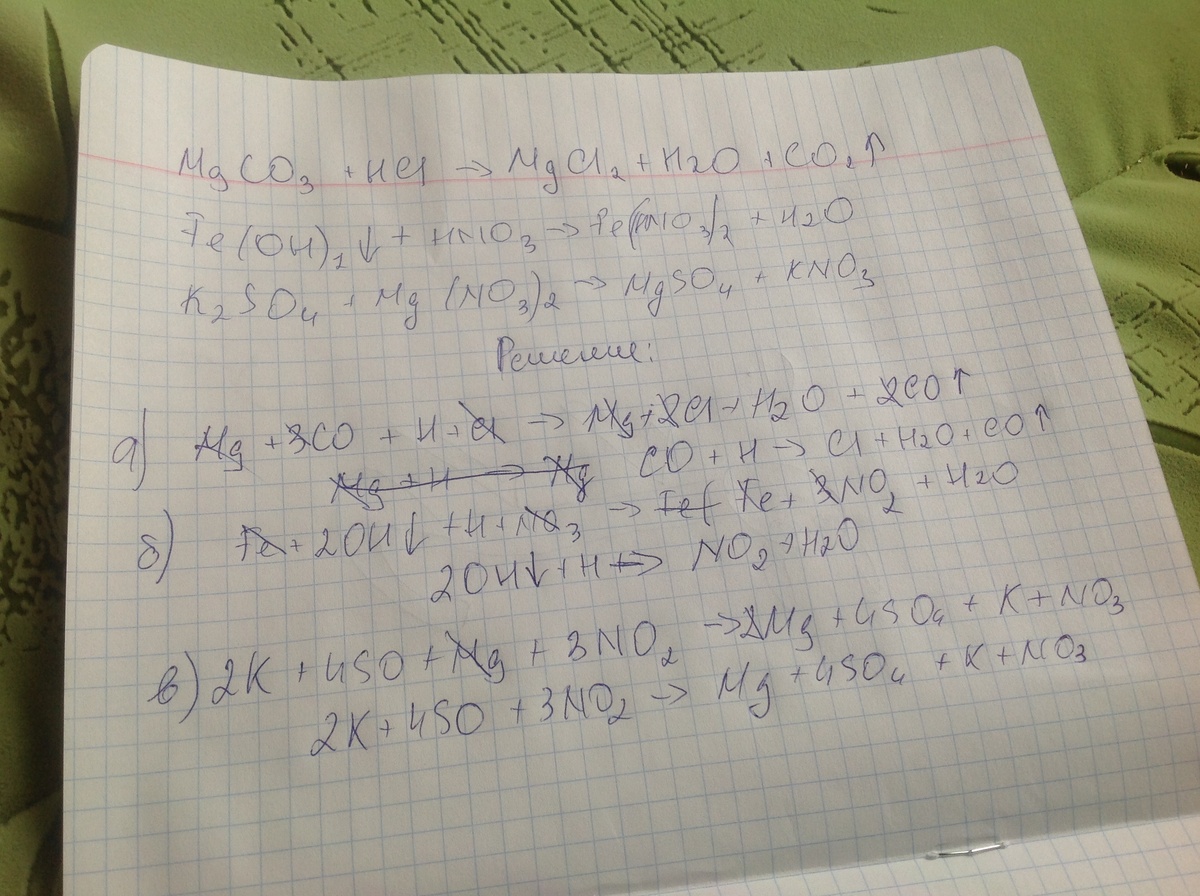 MgCO₃ + HCl → MgCl₂ + H2O + CO₂↑
Fe(OH)₂↓ + HNO₃ → Fe(NO₃)₂ + H2O
K₂SO₄ + Mg(NO₃)₂ → MgSO₄ + KNO₃
Решение:
а) Mg + 3CO + H + Cl → Mg + 2Cl + H₂O + 2CO↑
Mg + H → Mg CO + H → Cl + H₂O + CO↑
б) Fe + 2OH↓ + H + NO₃ → Fe( Fe + 3NO₂ + H2O
2OH↓ + H → NO₂ + H2O
в) 2K + 4SO + Mg + 3NO₂ → 2Mg + 4SO₄ + K + NO₃
2K + 4SO + 3NO₂ → Mg + 4SO₄ + K + NO₃